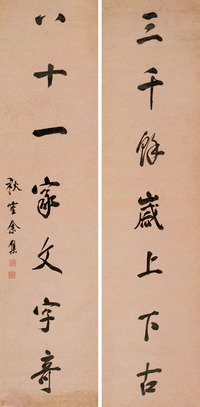 三千餘歲上下古
八十一家文字奇
秋室余集